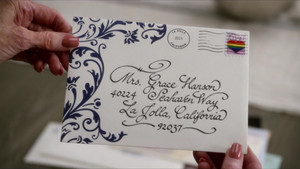 Mrs. Grace Hanson
40224 Seahaven Way
La Jolla, California
92037